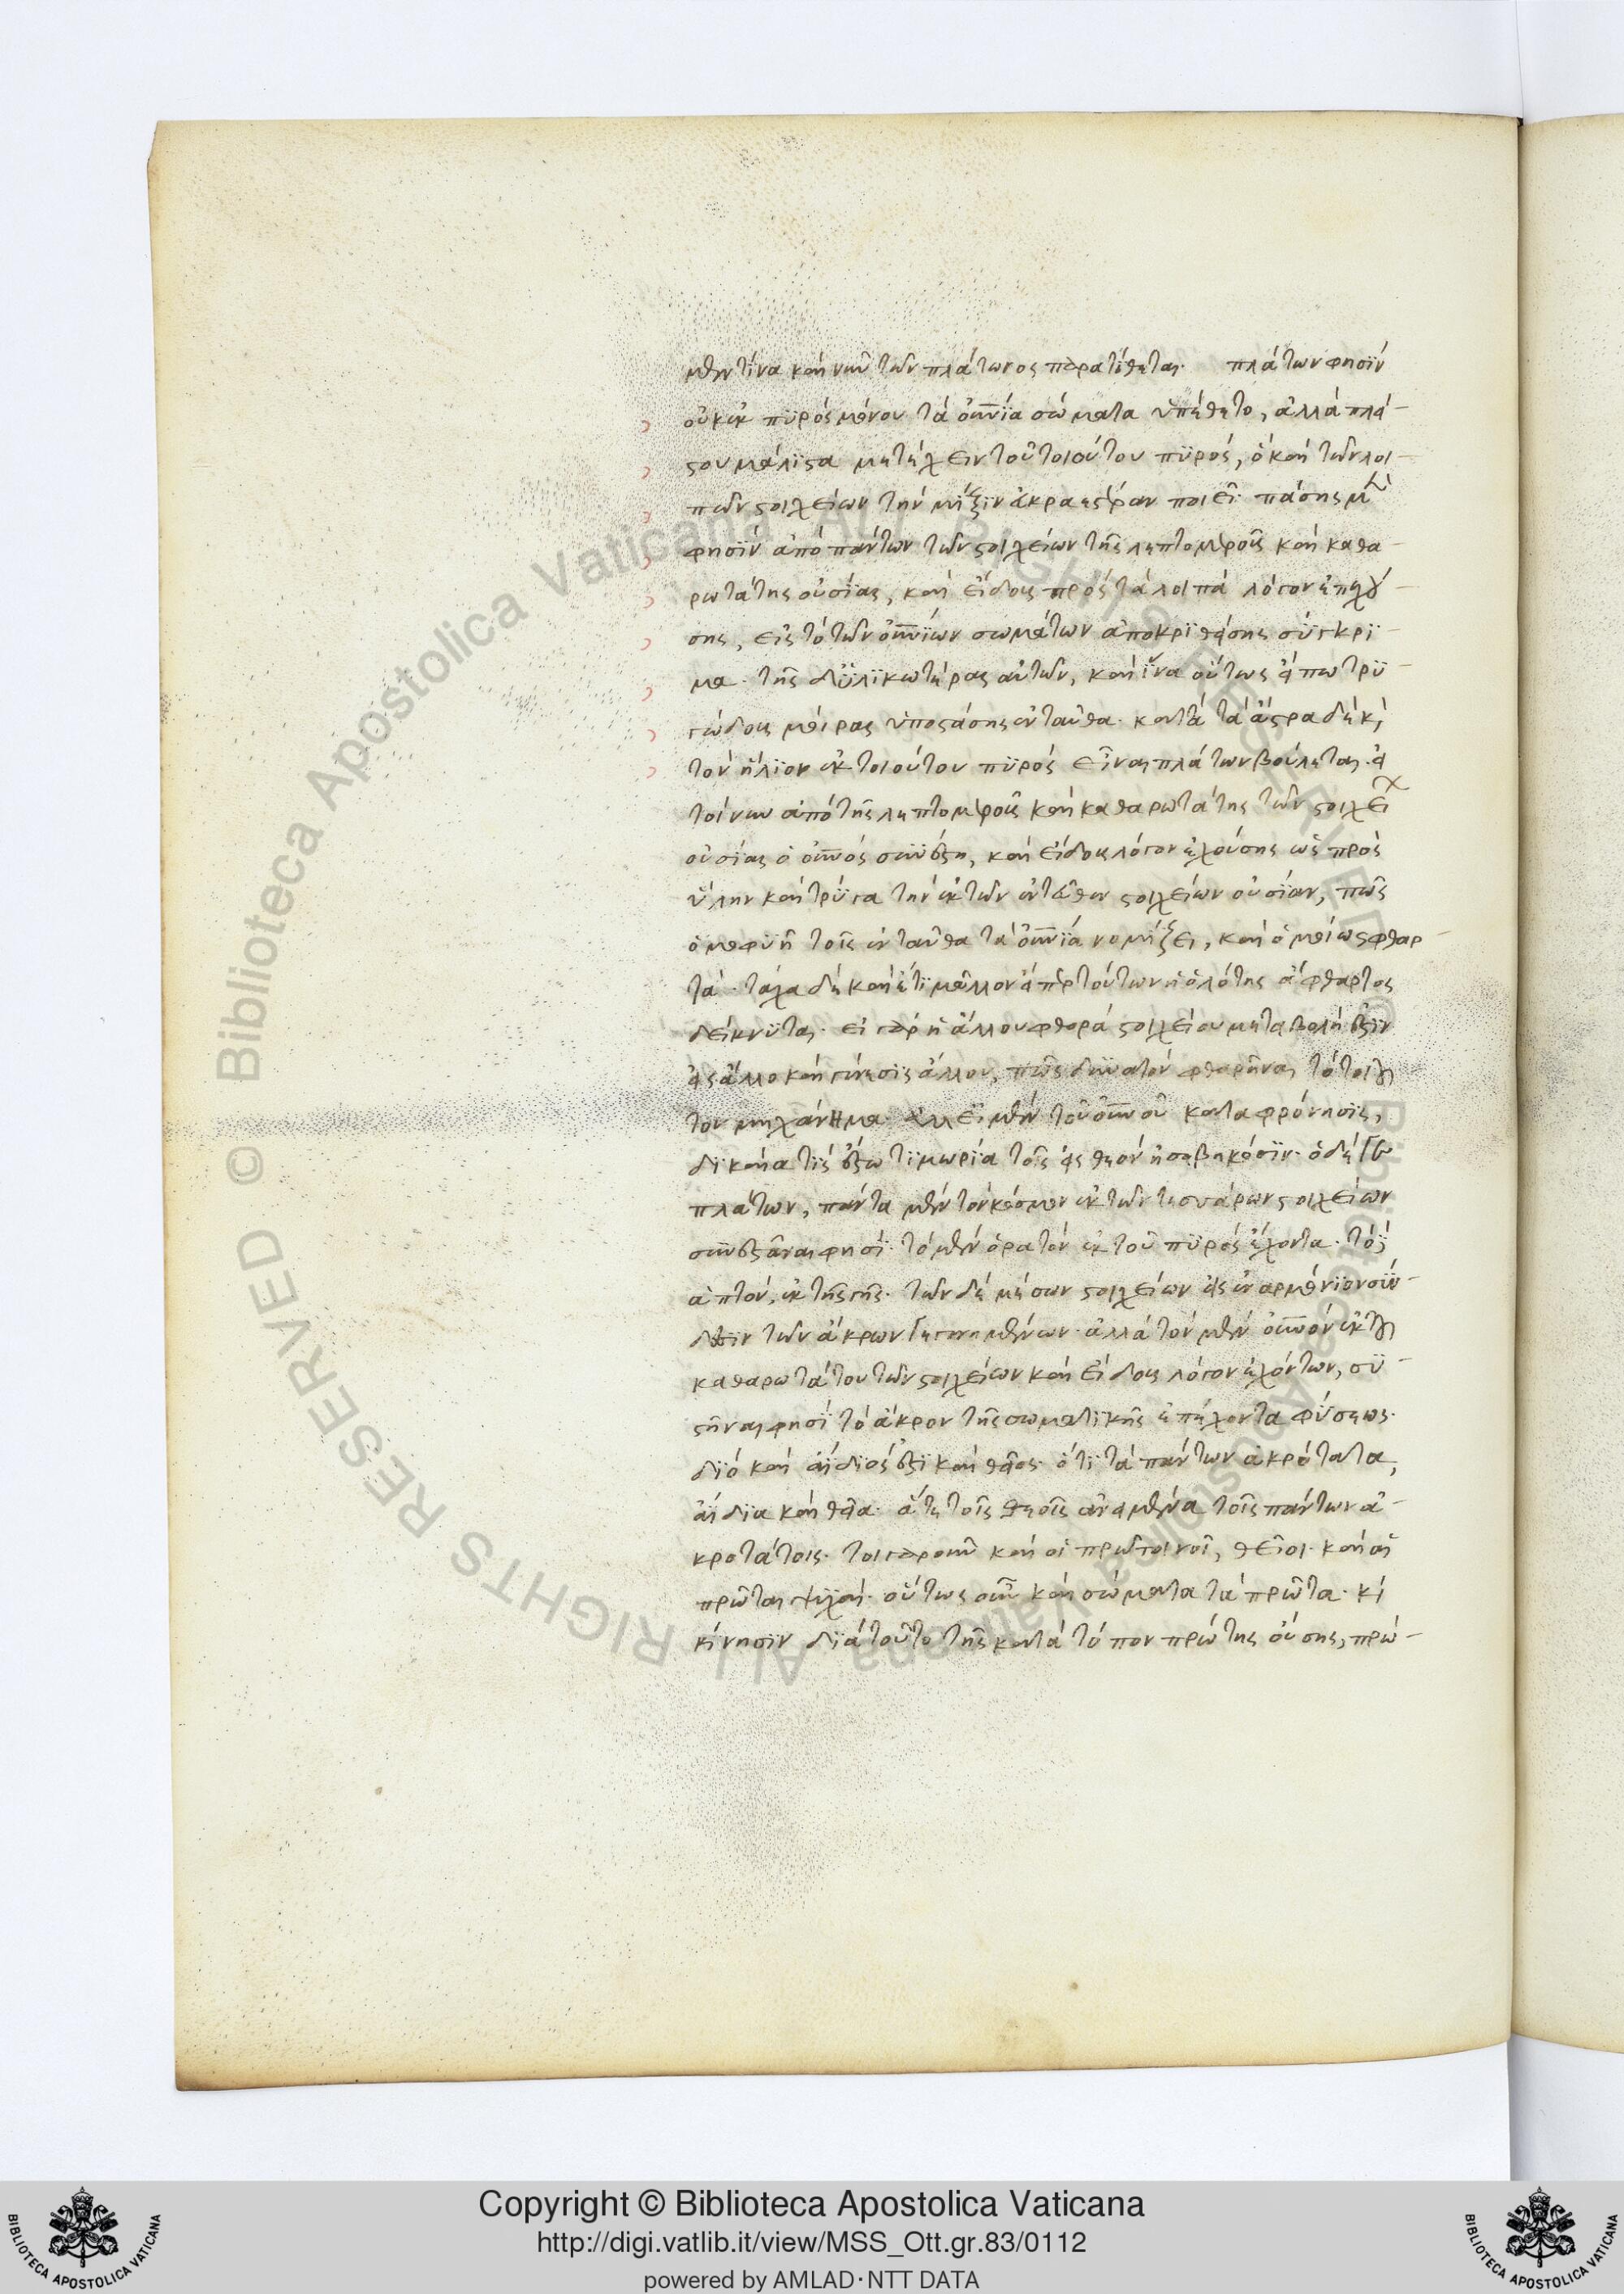 μέντινα καὶ νῦν τῶν πλάτωνος παρατίθεται. πλάτων φησὶν
οὐκ ἐκ πυρὸς μόνου τὰ οὐνϊα σώματα ὑπέθετο, ἀλλὰ πλεί-
στου μάλιστα μετέχειν τοῦ τοιούτου πυρός, ὃ καὶ τῶν λοι-
πῶν στοιχείων τὴν μῖξιν ποιεῖ. πάσης
φησὶν ἀπὸ πάντων τῶν στοιχείων τῆς λεπτομεροῦς καὶ καθα-
ρωτάτης οὐσίας, καὶ εἴδους πρὸς τὰ λοιπὰ λόγον ἐπεχού-
σης, εἰς τὸ τῶν οὐνίων σωμάτων ἀποκριθείσης σύγκρι-
μα. τῆς δ' ὑλικωτέρας αὐτῶν, καὶ ἵνα οὕτως εἴπω τρυ-
γώδους μοίρας ὑποστάσης ἐνταῦθα. κατὰ τὰ ἄστρα δὲ καὶ
τὸν ἥλιον ἐκ τοιούτου πυρὸς εἶναι πλάτων βούλεται. εἰ
τοίνυν ἀπὸ τῆς λεπτομεροῦς καὶ καθαρωτάτης τῶν στοιχεί
οὐσίας ὁ οὐνὸς συνέστη, καὶ εἴδους λόγον ἐχούσης ὡς πρὸς
ὕλην καὶ τρύγα τὴν ἐκ τῶν ἐνταῦθα στοιχείων οὐσίαν, πῶς
ὁμοφυῆ τοῖς ἐνταῦθα τὰ οὐνία νομίζει, καὶ ὁμοίως φθαρ-
τά. τάχα δὲ καὶ ἔτι μᾶλλον εἴπερ τούτων ἡ ὁλότης ἄφθαρτος
δείκνυται. εἰ γὰρ ἡ ἄλλου φθορὰ στοιχείου μεταβολή ἐστιν
εἰς ἄλλο καὶ γένεσις ἄλλου, πῶς δυνατὸν φθαρῆναι τὸ τοιοῦ
τον μηχάνημα. ἀλλ' εἰ μὲν τοῦ οὐνοῦ καταφρόνησις,
δικαία τίς ἔστω τιμωρία τοῖς εἰς θεὸν ἠσεβηκόσιν. ὁ δέ γε
πλάτων, πάντα μὲν τὸν κόσμον ἐκ τῶν τεσσάρων στοιχείων
συνεστάναι φησί. τὸ μὲν ὁρατὸν ἐκ τοῦ πυρὸς ἔχοντα. τὸ δὲ
ἁπτόν, ἐκ τῆς γῆς. τῶν δὲ μέσων στοιχείων εἰς ἐναρμόνιον σύν-
δεσιν τῶν ἄκρων γεγονημένων. ἀλλὰ τὸν μὲν οὐνὸν ἐκ τοῦ
καθαρωτάτου τῶν στοιχείων καὶ εἴδους λόγον ἐχόντων, συ-
στῆναι φησὶ τὸ ἄκρον τῆς σωματικῆς ἐπέχοντα φύσεως.
διὸ καὶ ἀΐδιός ἐστι καὶ θεῖος. ὅτι τὰ πάντων ἀκρότατα,
ἀΐδια καὶ θεῖα. ἅτε τοῖς θεοῖς ἀνειμένα τοῖς πάντων ἀ-
κροτάτοις. τοιγαροῦν καὶ οἱ πρῶτοι νοῖ, θεῖοι. καὶ αἱ
πρῶται ψυχαί. οὕτως οὖν καὶ σώματα τὰ πρῶτα. κί
κίνησιν διὰ τοῦτο τῆς κατὰ τόπον πρώτης οὔσης, πρώ-
Copyright © Biblioteca Apostolica Vaticana
http://digi.vatlib.it/view/MSS_Ott.gr.83/0112
powered by AMLAD·NTT DATA